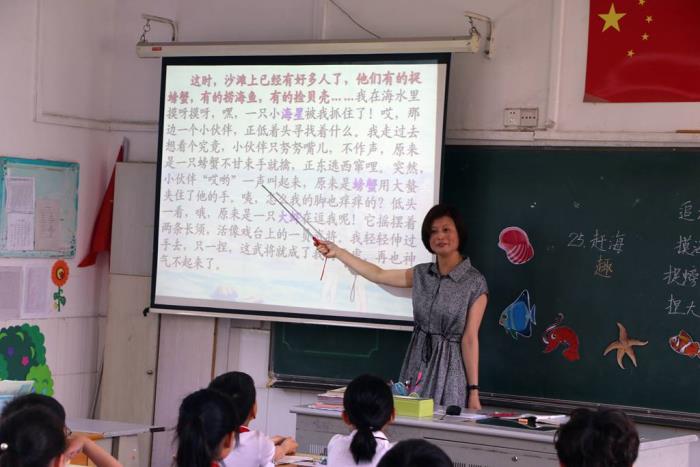 这时，沙滩上已经有好多人了，他们有的捉
螃蟹，有的捞海鱼，有的捡贝壳……我在海水里
摸呀摸呀，嘿，一只小海星被我抓住了！哎，那
边一个小伙伴，正低着头寻找着什么。我走过去
想看个究竟，小伙伴只努努嘴儿，不作声，原来
是一只螃蟹不甘束手就擒，正东逃西窜哩。突然，
小伙伴“哎哟”一声叫起来，原来是螃蟹用大螯
夹住了他的手。咦，怎么我的脚也痒痒的？低头
一看，哦，原来是一只大虾在逗我呢！它摇摆着
两条长须，活像戏台上的一员武将。我轻轻伸过
手去，只一捏，这武将就成了我的俘虏，再也神
气不起来了。
25.赶海
趣
追